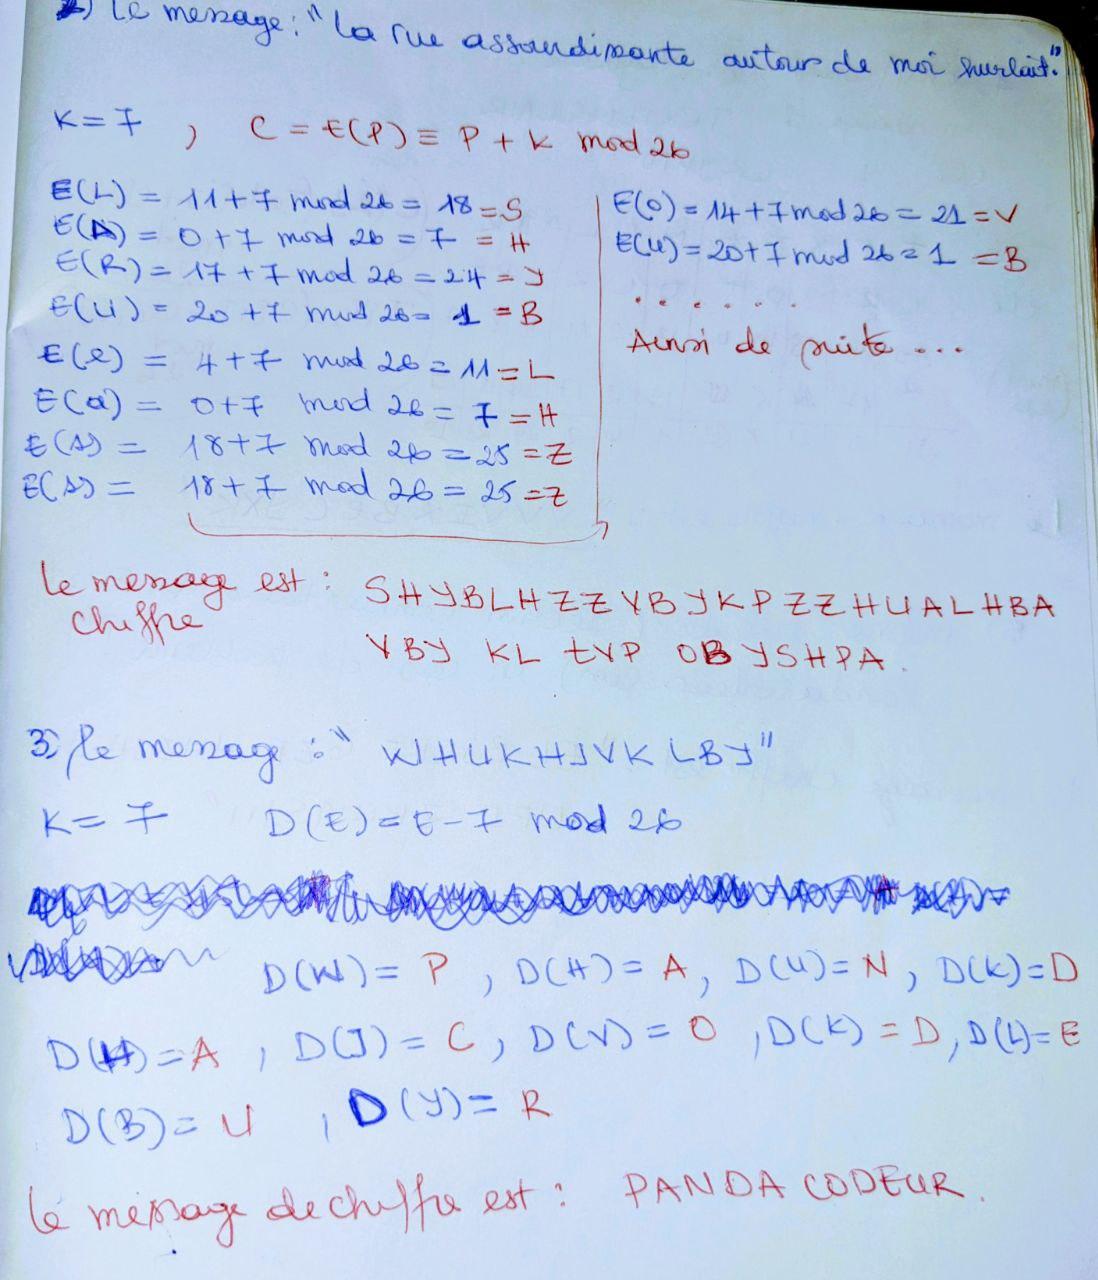 2) Le message : "La rue assourdissante autour de moi hurlait."
K = 7 , C = E(P) ≡ P + K mod 26
E(L) = 11+7 mod 26 = 18 = S
E(A) = 0+7 mod 26 = 7 = H
E(R) = 17+7 mod 26 = 24 = Y
E(U) = 20+7 mod 26 = 1 = B
E(e) = 4+7 mod 26 = 11 = L
E(a) = 0+7 mod 26 = 7 = H
E(s) = 18+7 mod 26 = 25 = Z
E(s) = 18+7 mod 26 = 25 = Z
E(o) = 14+7 mod 26 = 21 = V
E(u) = 20+7 mod 26 = 1 = B
. . . . . .
Ainsi de suite ...
le message est : SHYBLHZZVBYKPZZHUALHBA
chiffre
VBY KL tVP OBYSHPA.
3) le message : "WHUKHJVKLBY"
K = 7 D(E) = E-7 mod 26
D(W) = P , D(H) = A, D(U) = N, D(K) = D
D(H) = A , D(J) = C, D(V) = O , D(K) = D, D(L) = E
D(B) = U , D(Y) = R
le message dechiffre est : PANDA CODEUR.